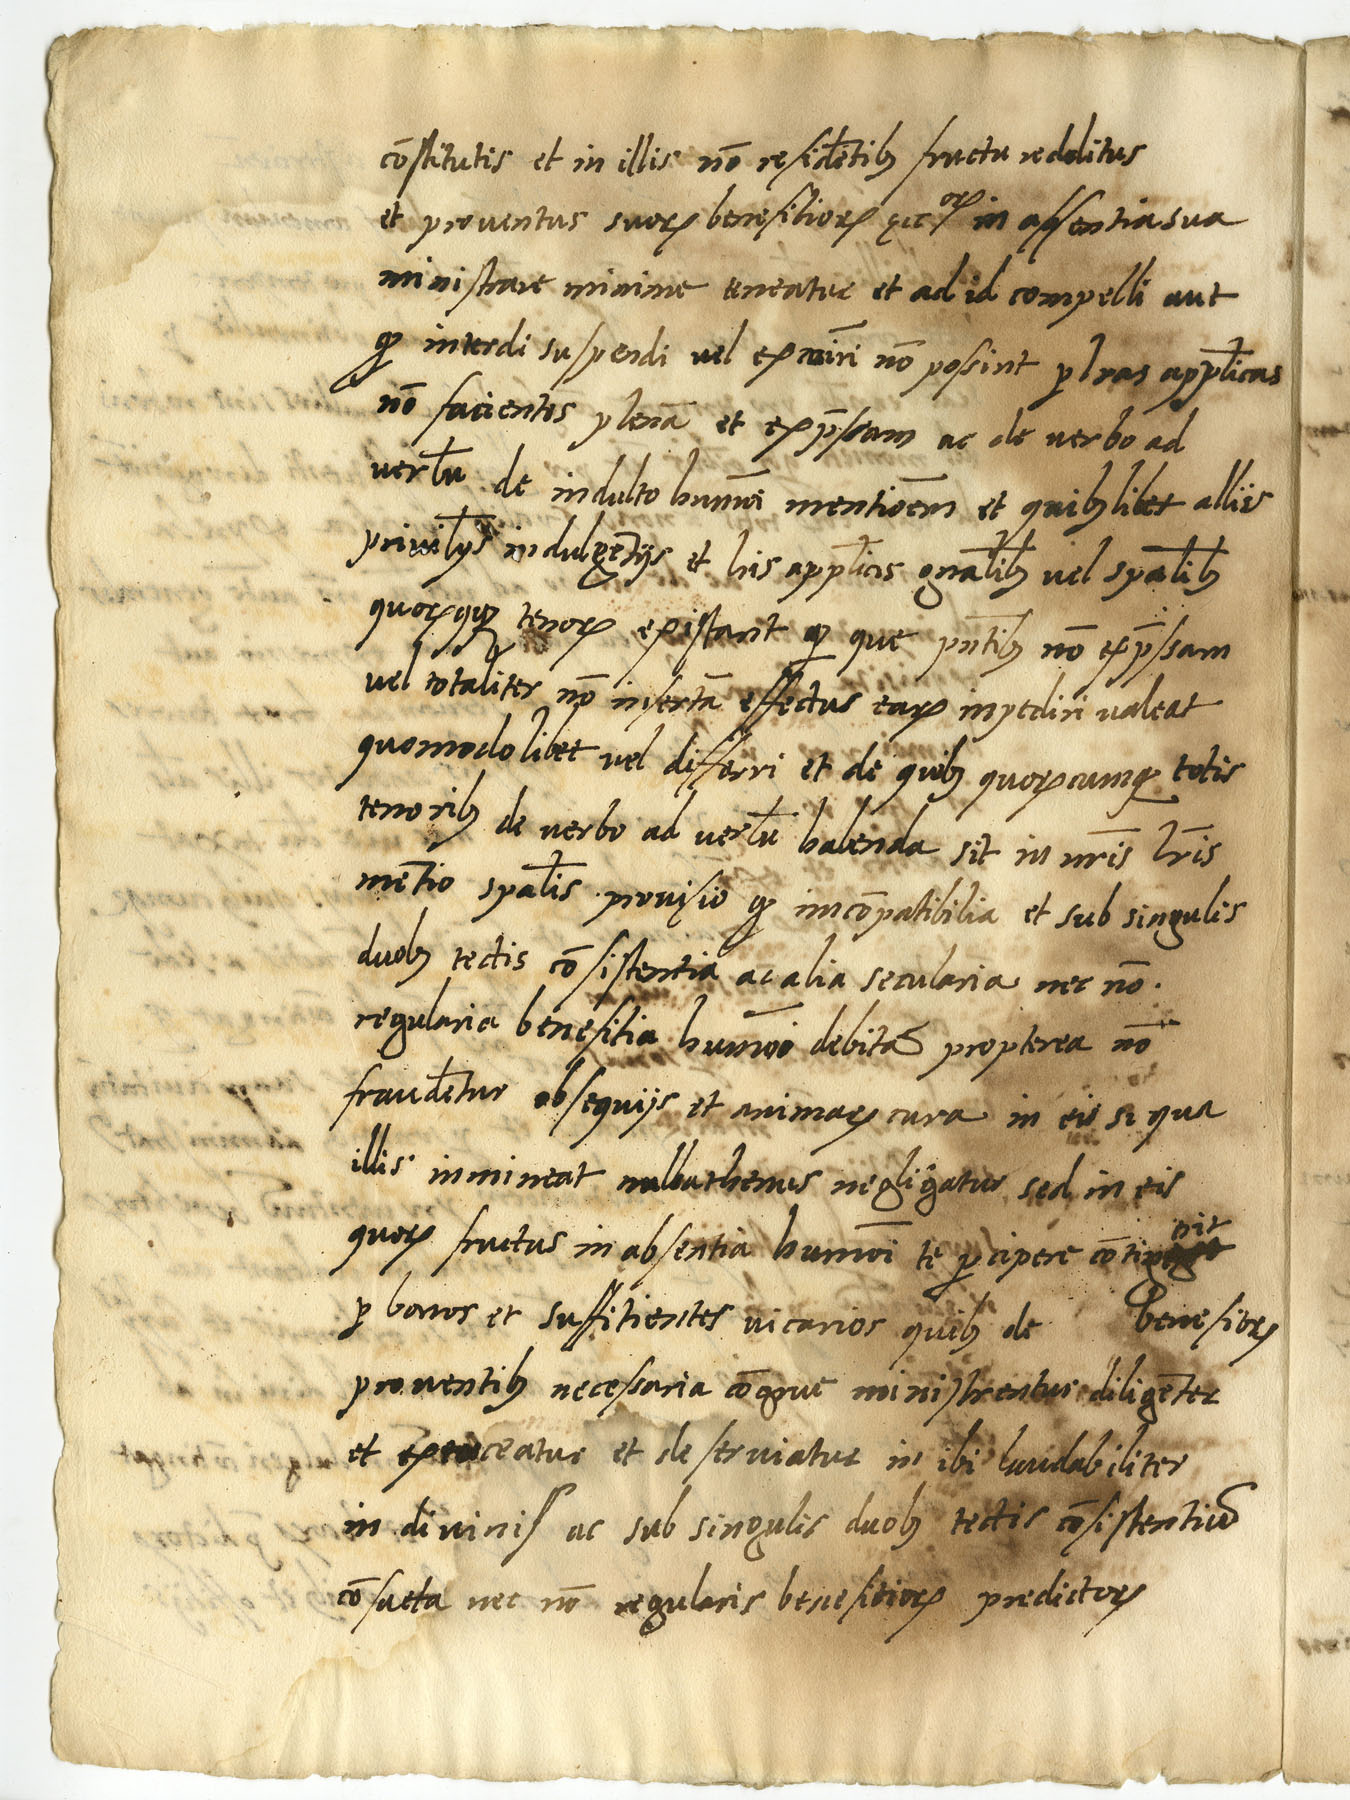 cōstitutis et in illis nō residētibꝫ fructu redditus
et prouentus suorꝝ benefitiorꝝ ecc orꝝ in absentia sua
ministrare minime teneatur et ad id compelli aut
ꝙ interdi suspendi vel exco͞iri nō possint ꝑ lras app̄licas
nō facientes plenā et exp̄ssam ac de verbo ad
verb̄u de indulto humōi mentiōem et quibꝫlibet alliis
priuil̄ijs indulgētijs et lris app̄licis gn̄alibꝫ vel sp̄alibꝫ
quorꝝqꝫ tenorꝝ existant ꝙ que pn̄tibꝫ nō exp̄ssam
vel totaliter nō insertā effectus earꝝ inpediri valeat
quomodolibet vel differri et de quibꝫ quorꝝcumqꝫ totis
tenoribꝫ de verbo ad verb̄u habenda sit in nr̄is lr̄is
mētio sp̄alis prouisio ꝙ incōpatibilia et sub singulis
duobꝫ tectis cōsistentia ac alia secularia nec nō
regularia benefitia humōi debita propterea nō
fraudētur obsequijs et animarꝝ cura in eis si qua
illis inmineat nullathenus negligatur sed in eis
quorꝝ fructus in absentia humōi te ꝑcipere cōtig nit
ꝑ bonos et suffitientes vicarios quibꝫ de benefitiorꝝ
prouentibꝫ necessaria cōgrue ministrentur diligēter
et exerceatur et deseruiatur in ibi laudabiliter
in diuinis ac sub singulis duobꝫ tectis cōsistentiū
cōsueta nec nō regularis benefitiorꝝ predictorꝝ